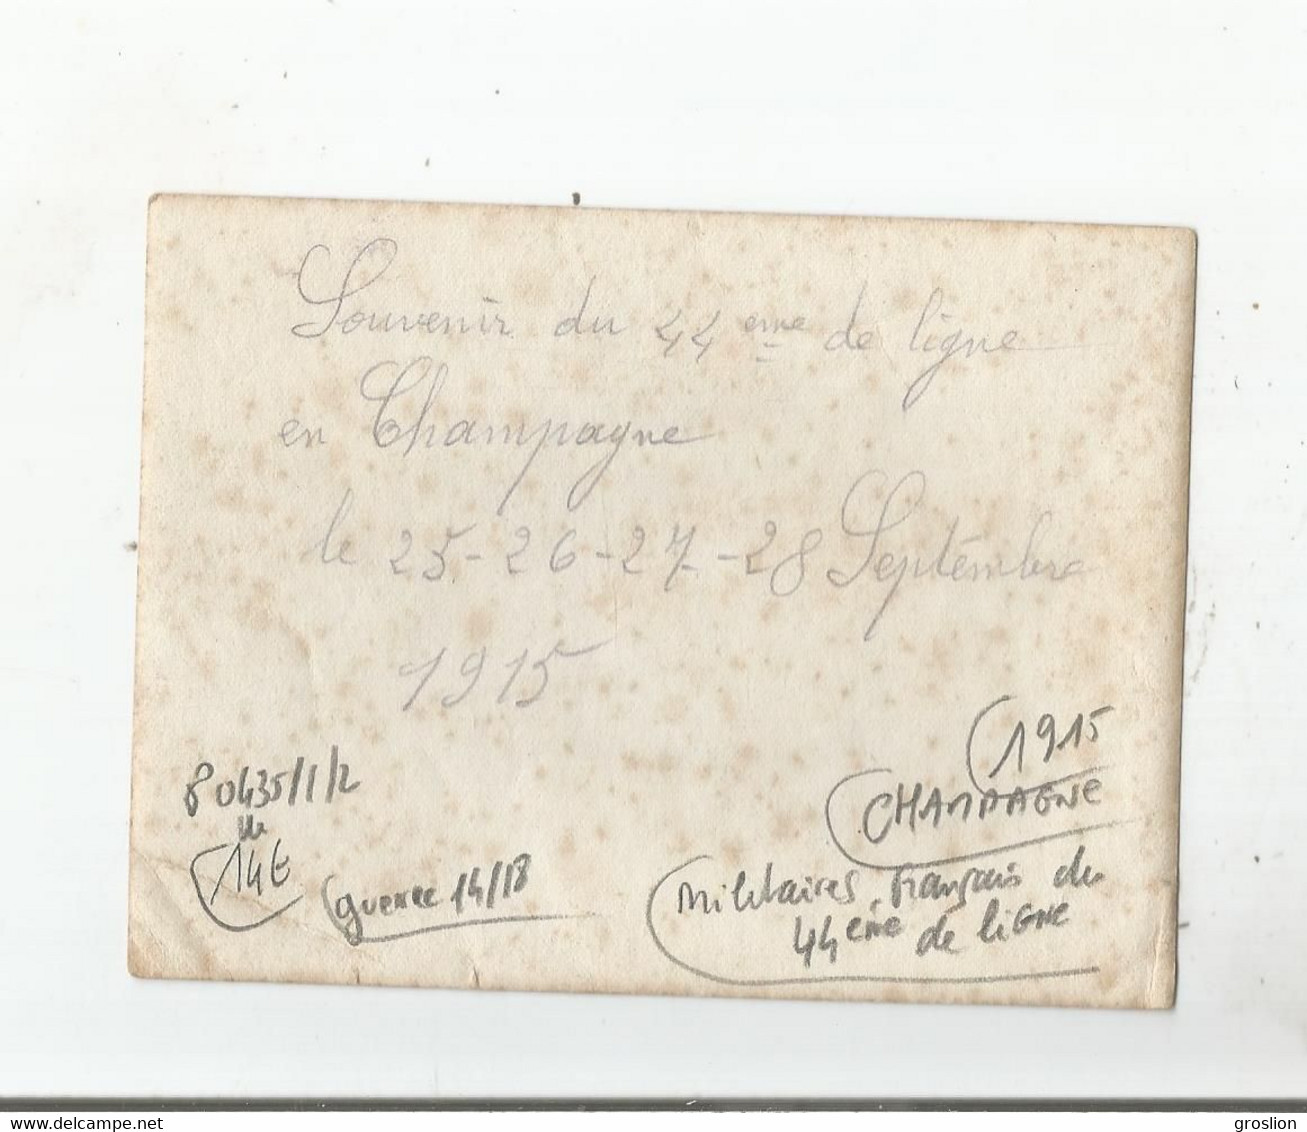 Souvenir du 44 eme de ligne
en Champagne
le 25-26-27-28 Septémbre
1915
1915
CHAMPAGNE
80435/1/2
14€
guerre 14/18
Militaires Français du
44 eme de LiGNE
delcampe.net
groslion